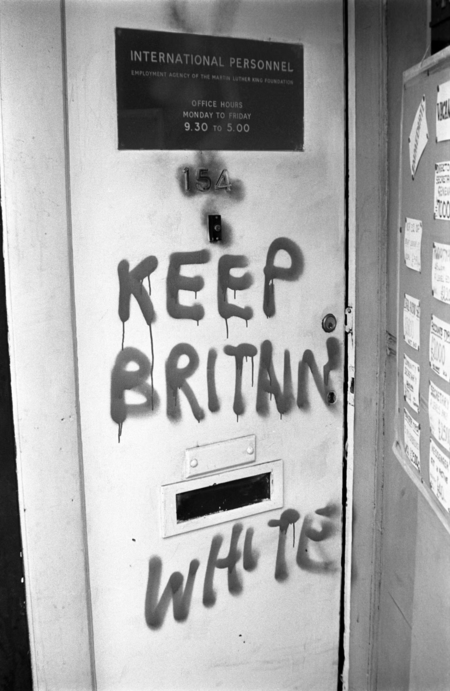 INTERNATIONAL PERSONNEL
EMPLOYMENT AGENCY OF THE MARTIN LUTHER KING FOUNDATION
OFFICE HOURS
MONDAY TO FRIDAY
9.30 TO 5.00
154
KEEP
BRITAIN
WHITE